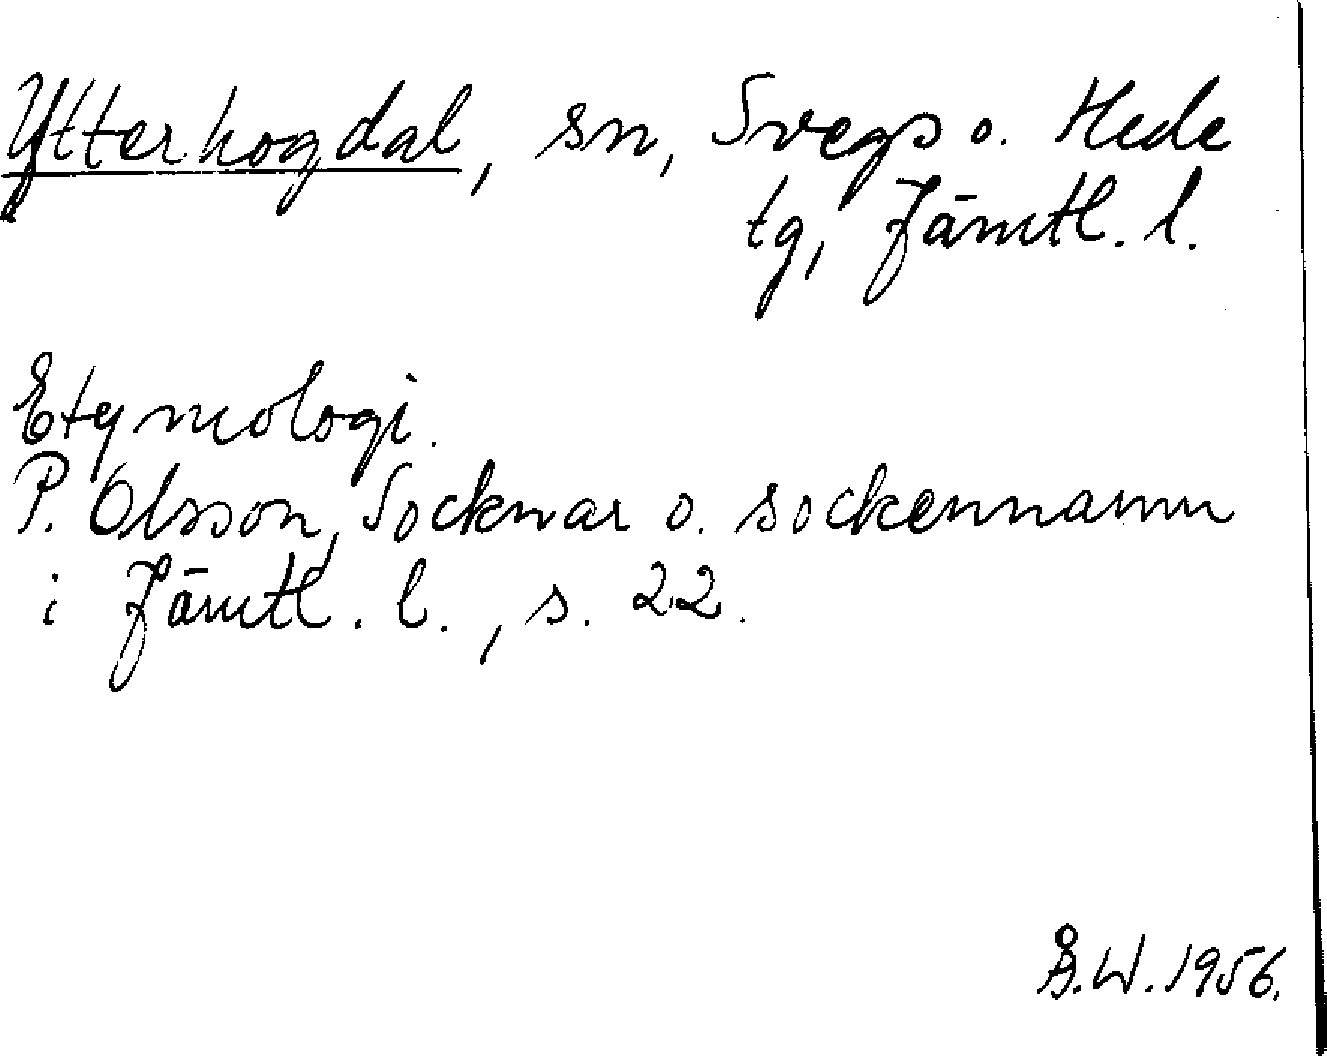 Ytterhogdal, sn, Svegs o. Hede
tg, Jämtl. l.
Etymologi.
P. Olsson, Socknar o. sockennamn
i Jämtl. l., s. 22.
Å.W. 1956.